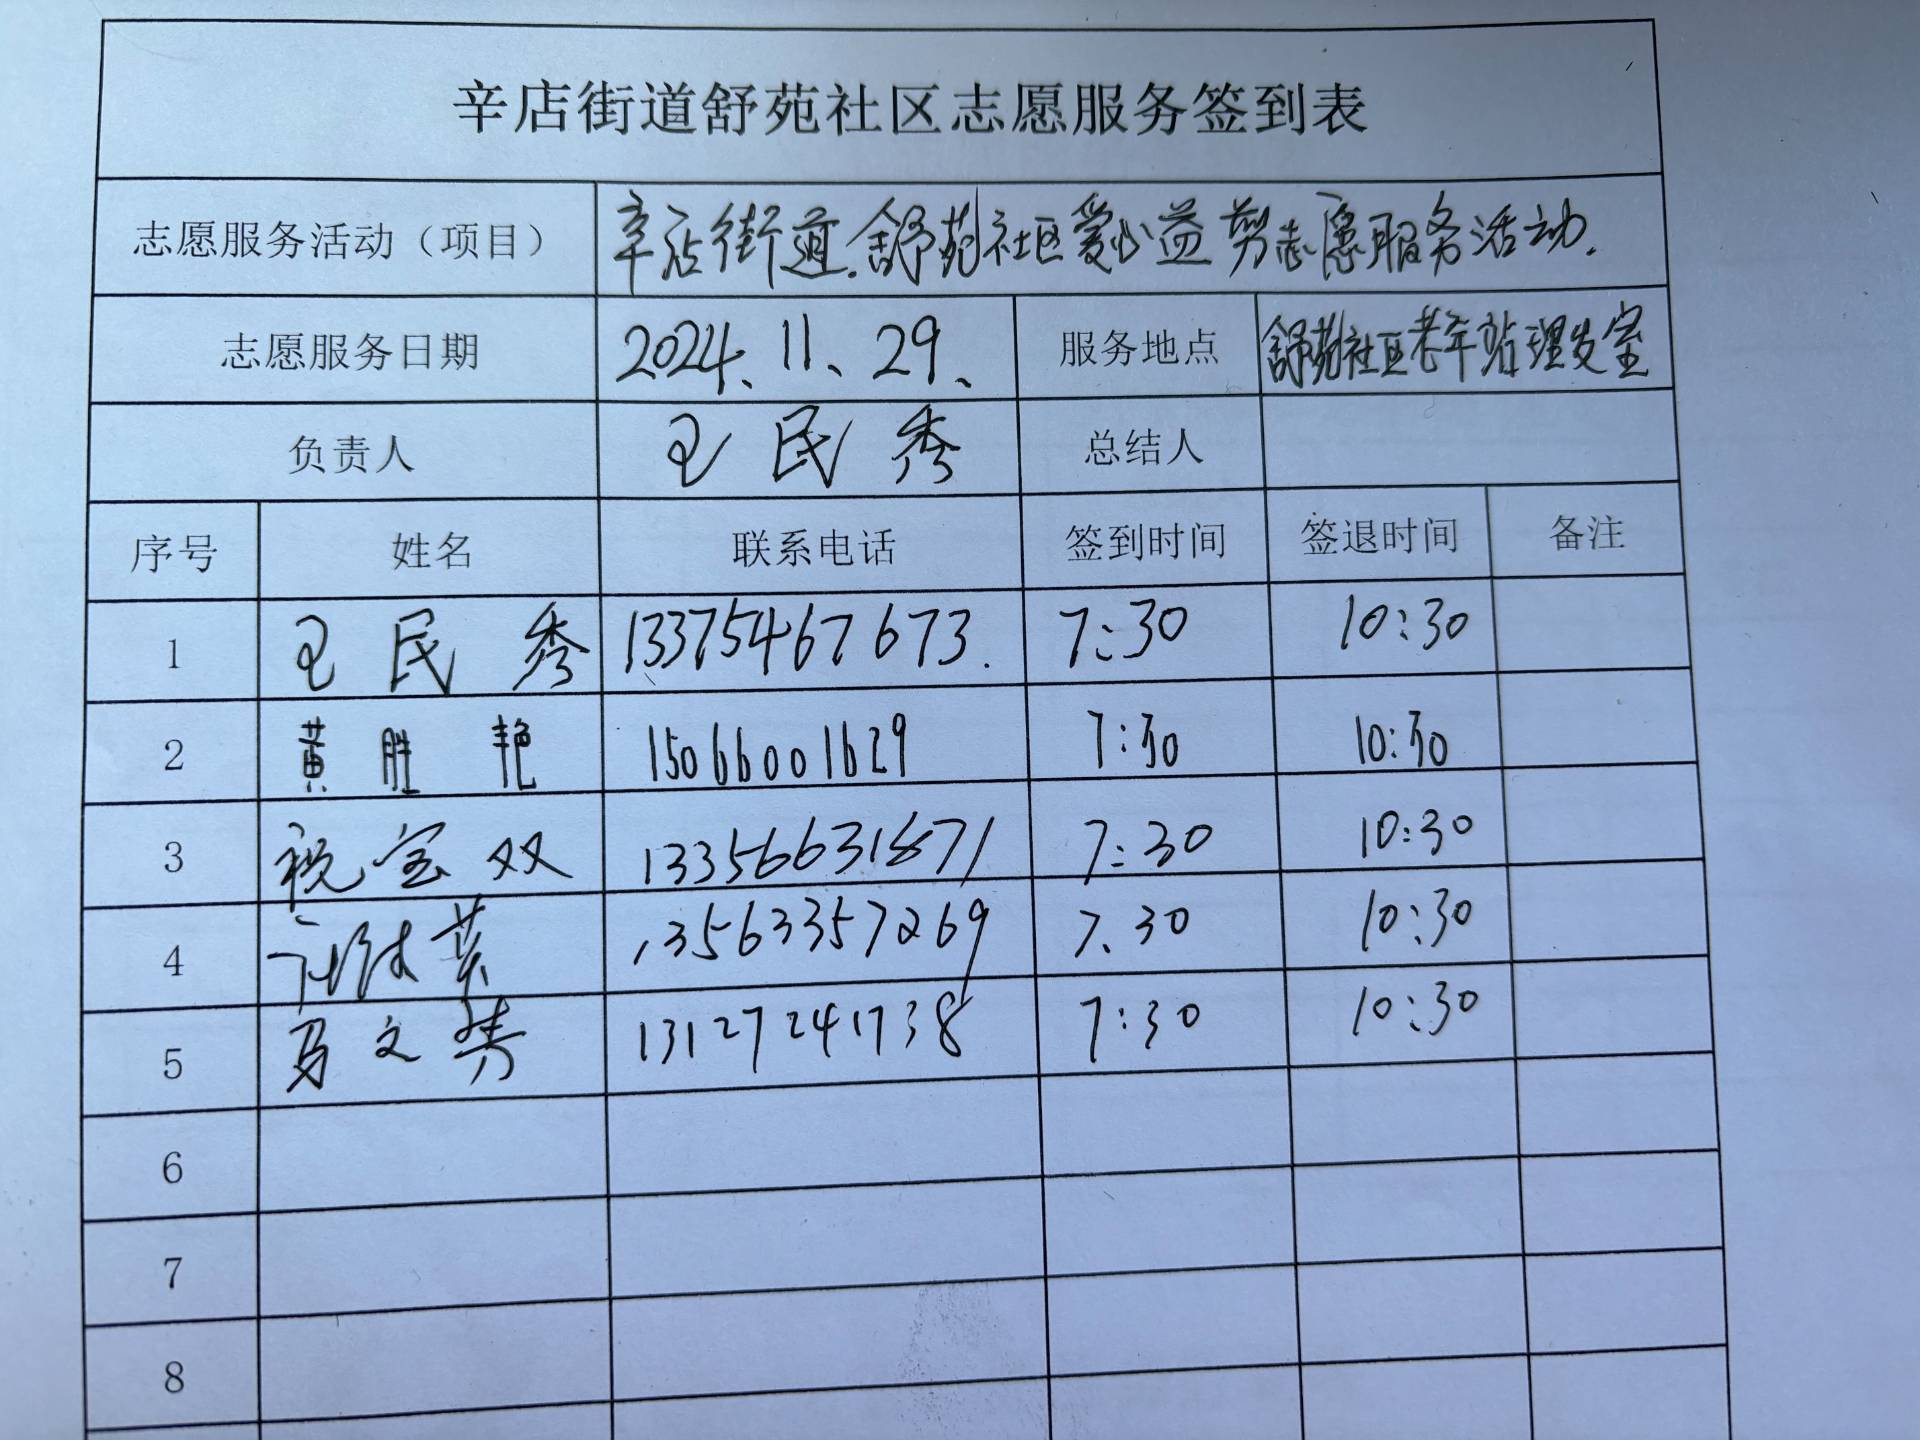 辛店街道舒苑社区志愿服务签到表
志愿服务活动（项目） 辛店街道舒苑社区爱心益剪志愿服务活动.
志愿服务日期 2024、11、29、 服务地点 舒苑社区老年站理发室
负责人 王民秀 总结人
序号 姓名 联系电话 签到时间 签退时间 备注
1 王民秀 13375467673. 7:30 10:30
2 黄胜艳 15066001629 7:30 10:30
3 祝宝双 13356631871 7:30 10:30
4 13563357269 7.30 10:30
5 马文 13127241738 7:30 10:30
6
7
8